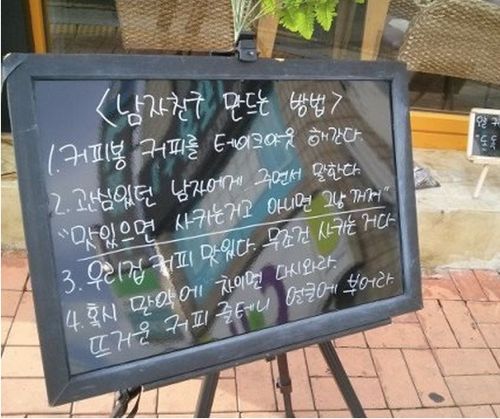 <남자친구 만드는 방법>
1. 커피봉 커피를 테이크아웃 해간다.
2. 관심있던 남자에게 주면서 말한다.
"맛있으면 사귀는거고 아니면 그냥 꺼져"
3. 우리집 커피 맛있다. 무조건 사귀는 거다
4. 혹시 만약에 차이면 다시와라.
뜨거운 커피 줄테니 얼굴에 부어라